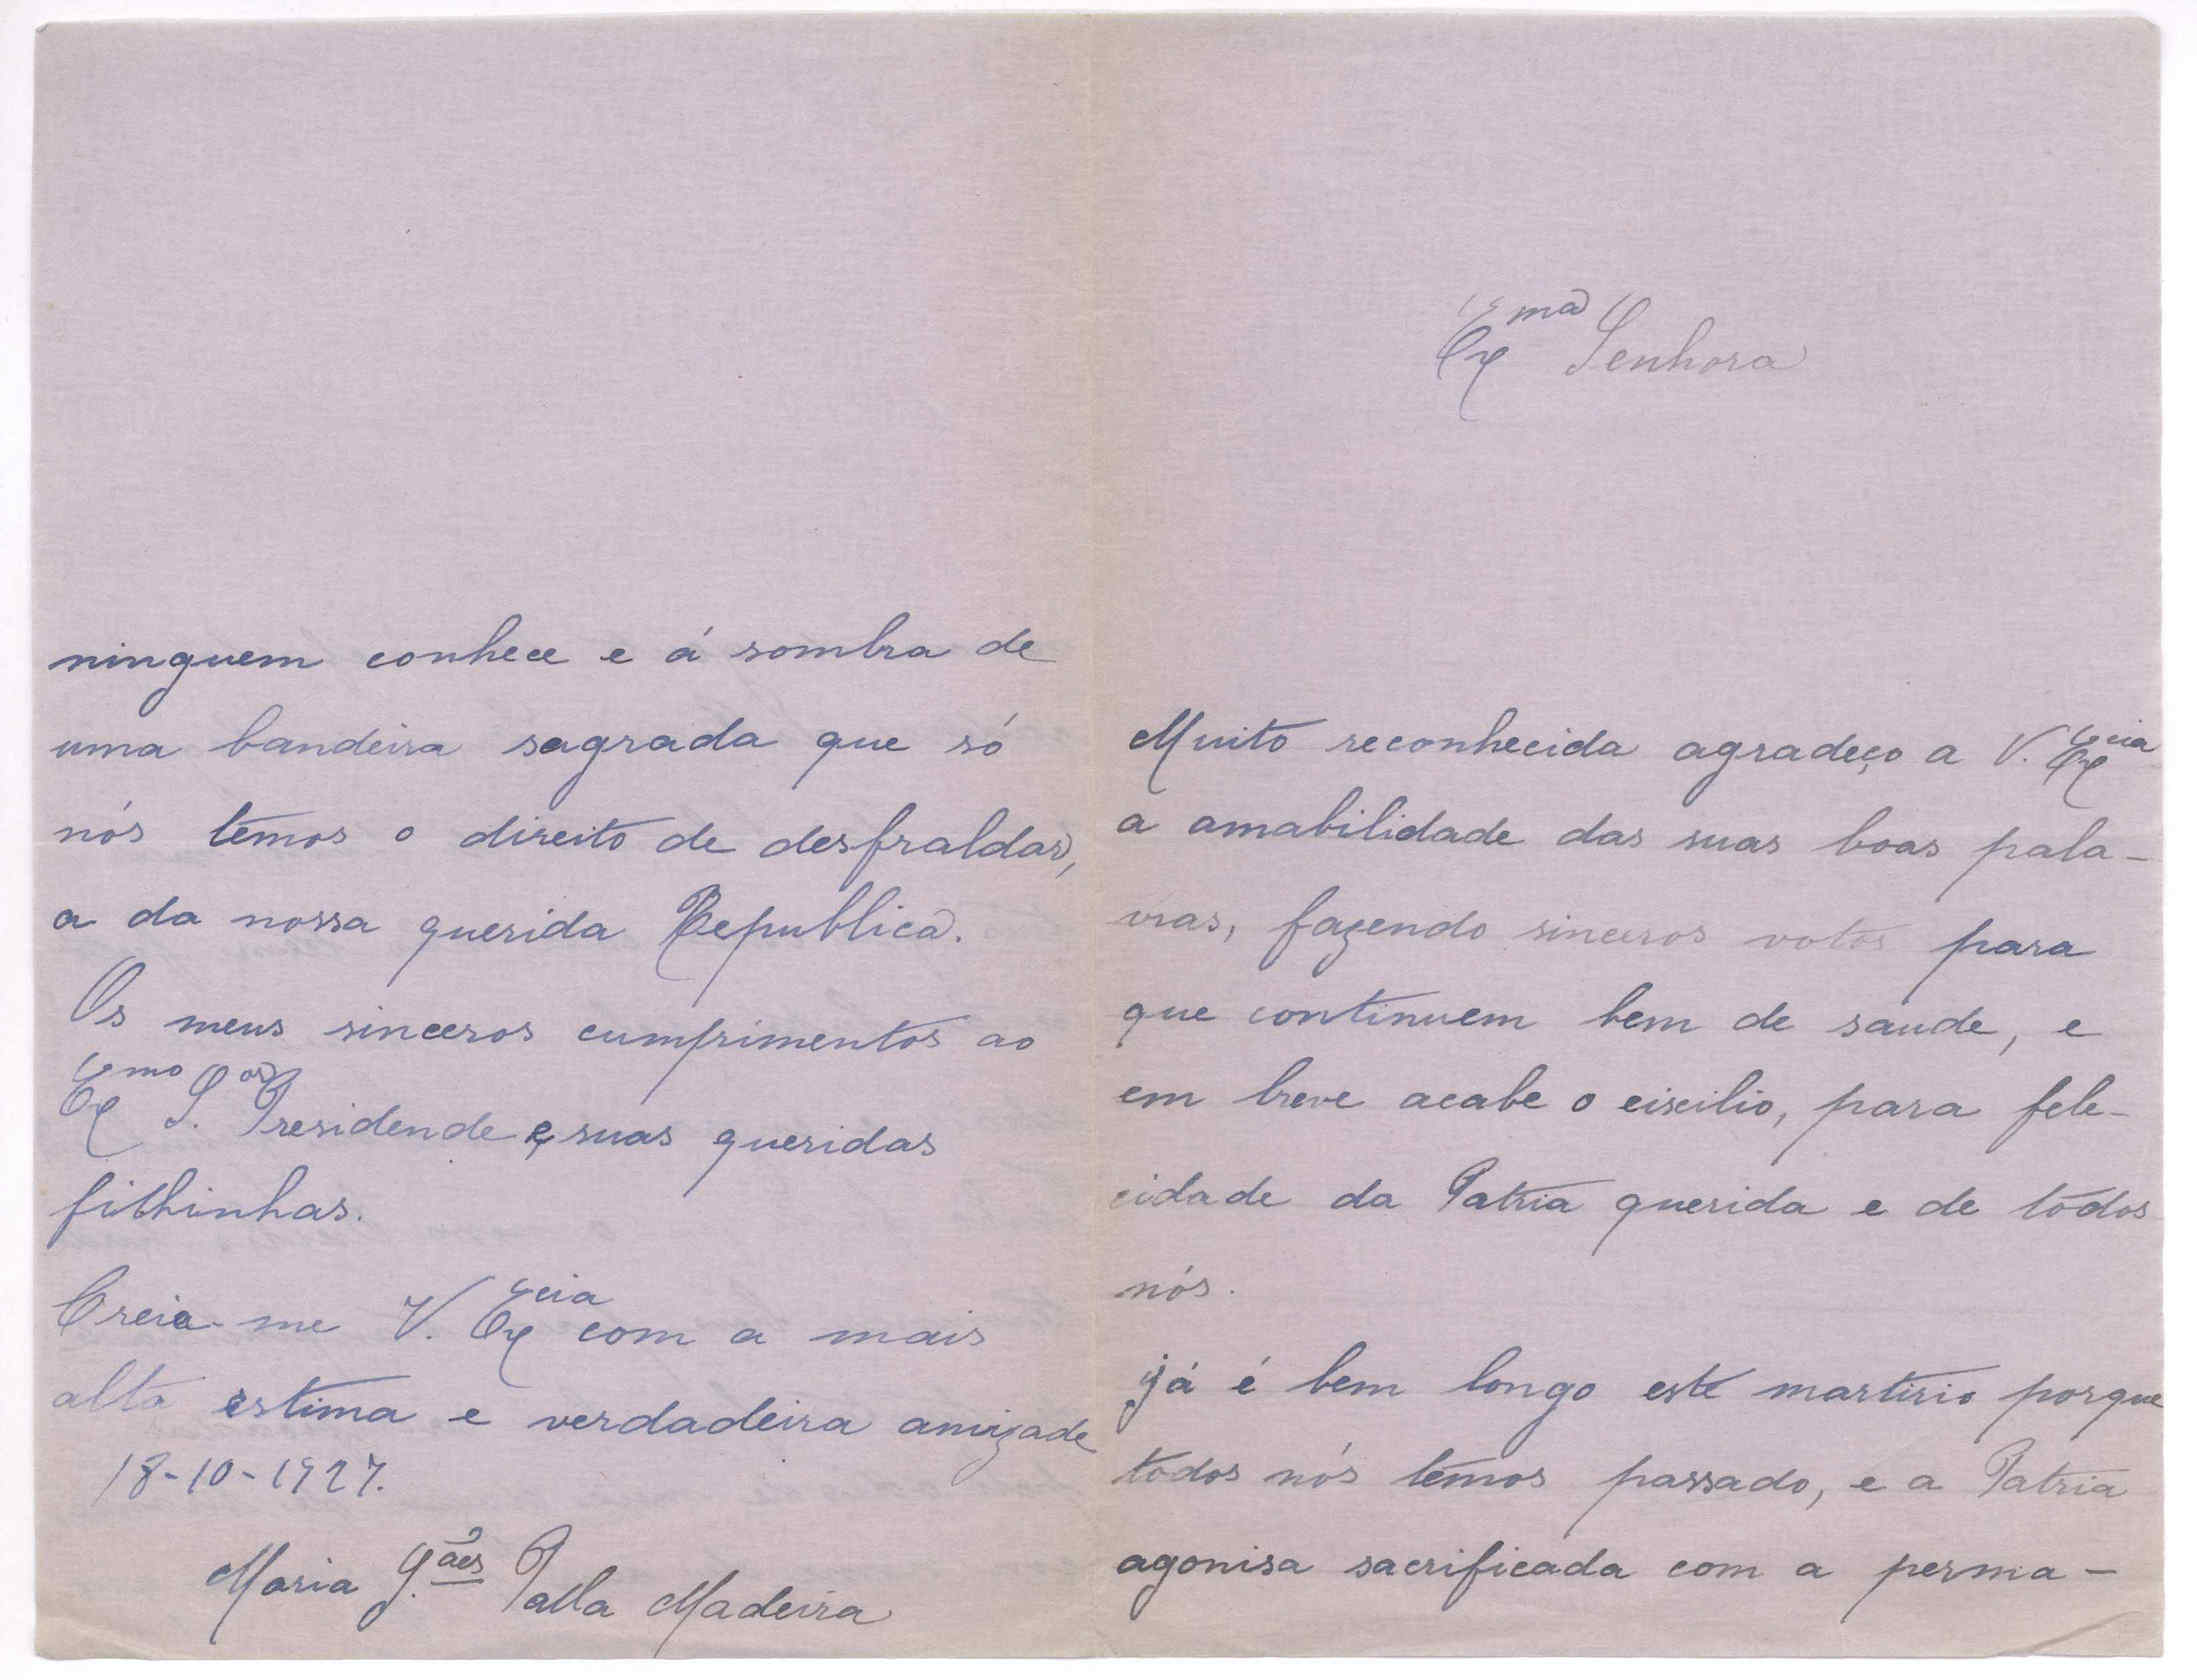 Exma Senhora
Muito reconhecida agradeço a V. Excia
a amabilidade das suas boas pala-
vras, fazendo sinceros votos para
que continuem bem de saude, e
em breve acabe o eixilio, para fele-
cidade da Patria querida e de todos
nós.
já é bem longo este martirio porque
todos nós temos passado, e a Patria
agonisa sacrificada com a perma-
ninguem conhece e á sombra de
uma bandeira sagrada que só
nós temos o direito de desfraldar,
a da nossa querida Republica.
Os meus sinceros cumprimentos ao
Exmo S.or Presidende e suas queridas
filhinhas.
Creia-me V. Excia com a mais
alta estima e verdadeira amizade
18-10-1927.
Maria G.ães Palla Madeira